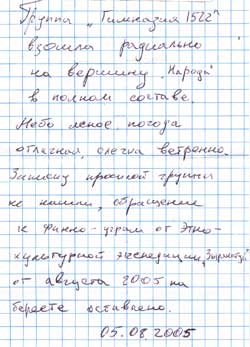 Группа „Гимназия 1522"
взошла радиально
на вершину „Народа"
в полном составе.
Небо ясное, погода
отличная, слегка ветренно.
Записку прошлой группы
не нашли, обращение
к Финно-уграм от Этно-
культурной экспедиции
от августа 2005 на
бересте оставлено.
05.08.2005